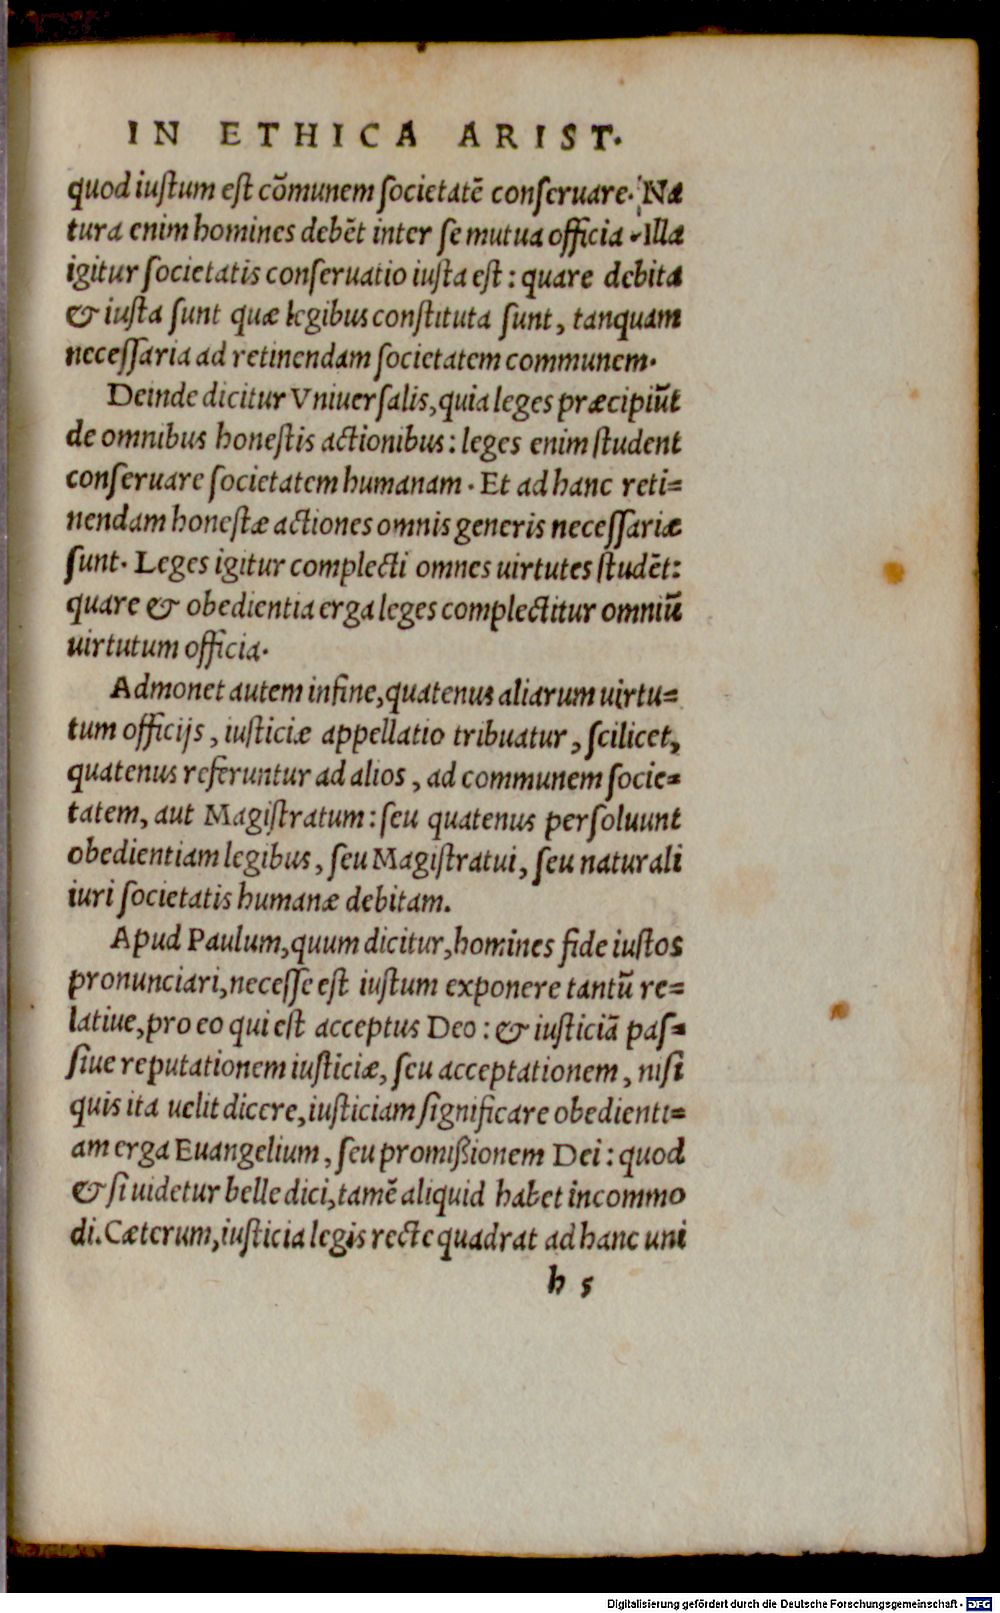 IN ETHICA ARIST.
quod iustum est cõmunem societatẽ conseruare. Na
tura enim homines debẽt inter se mutua officia. Illa
igitur societatis conseruatio iusta est: quare debita
& iusta sunt quæ legibus constituta sunt, tanquam
necessaria ad retinendam societatem communem.
Deinde dicitur Vniuersalis, quia leges præcipiũt
de omnibus honestis actionibus: leges enim student
conseruare societatem humanam. Et ad hanc reti=
nendam honestæ actiones omnis generis necessariæ
sunt. Leges igitur complecti omnes uirtutes studẽt:
quare & obedientia erga leges complectitur omniũ
uirtutum officia.
Admonet autem in fine, quatenus aliarum uirtu=
tum officijs, iusticiæ appellatio tribuatur, scilicet,
quatenus referuntur ad alios, ad communem socie=
tatem, aut Magistratum: seu quatenus persoluunt
obedientiam legibus, seu Magistratui, seu naturali
iuri societatis humanæ debitam.
Apud Paulum, quum dicitur, homines fide iustos
pronunciari, necesse est iustum exponere tantũ re=
latiue, pro eo qui est acceptus Deo: & iusticiã pas=
siue reputationem iusticiæ, seu acceptationem, nisi
quis ita uelit dicere, iusticiam significare obedienti=
am erga Euangelium, seu promißionem Dei: quod
& si uidetur belle dici, tamẽ aliquid habet incommo
di. Cæterum, iusticia legis recte quadrat ad hanc uni
h 5
Digitalisierung gefördert durch die Deutsche Forschungsgemeinschaft - DFG